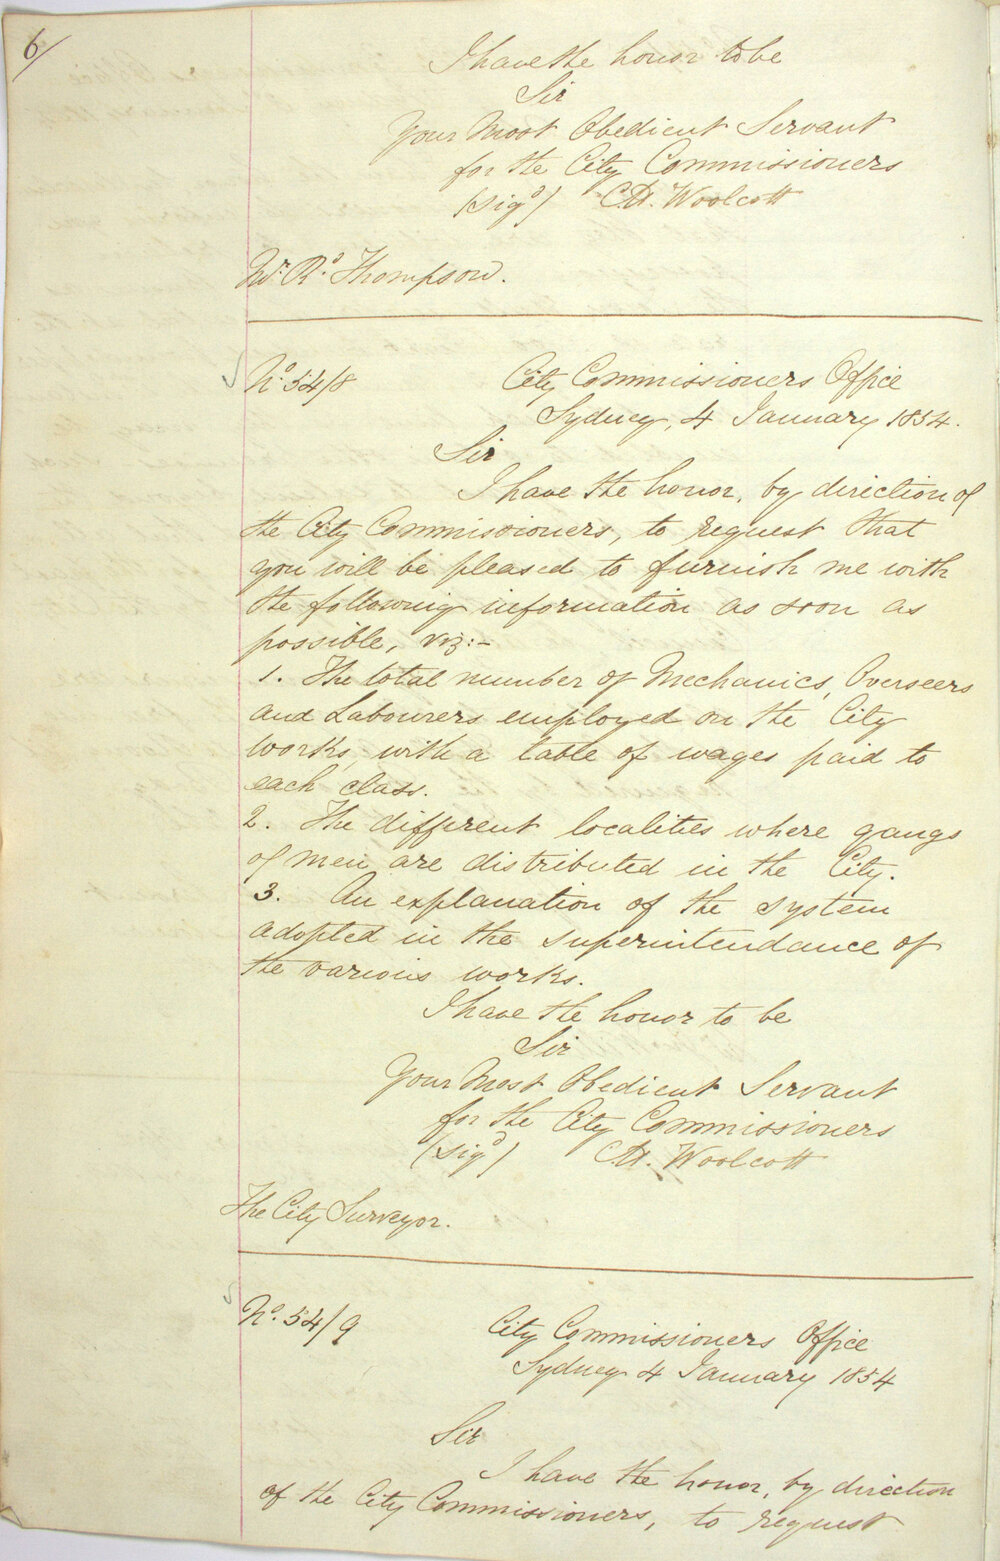 6/
I have the honor to be
Sir
Your Most Obedient Servant
for the City Commissioners
(sigd) C.H. Woolcott
Mr. Rd. Thompson.
No. 54/8 City Commissioners Office
Sydney, 4 January 1854.
Sir
I have the honor, by direction of
the City Commissioners, to request that
you will be pleased to furnish me with
the following information as soon as
possible, viz:-
1. The total number of Mechanics, Overseers
and Labourers employed on the City
Works, with a table of wages paid to
each class.
2. The different localities where gangs
of men are distributed in the City.
3. An explanation of the system
adopted in the superintendance of
the various works.
I have the honor to be
Sir
Your Most Obedient Servant
for the City Commissioners
(sigd) C.H. Woolcott
The City Surveyor.
No. 54/9 City Commissioners Office
Sydney 4 January 1854
Sir
I have the honor, by direction
of the City Commissioners, to request